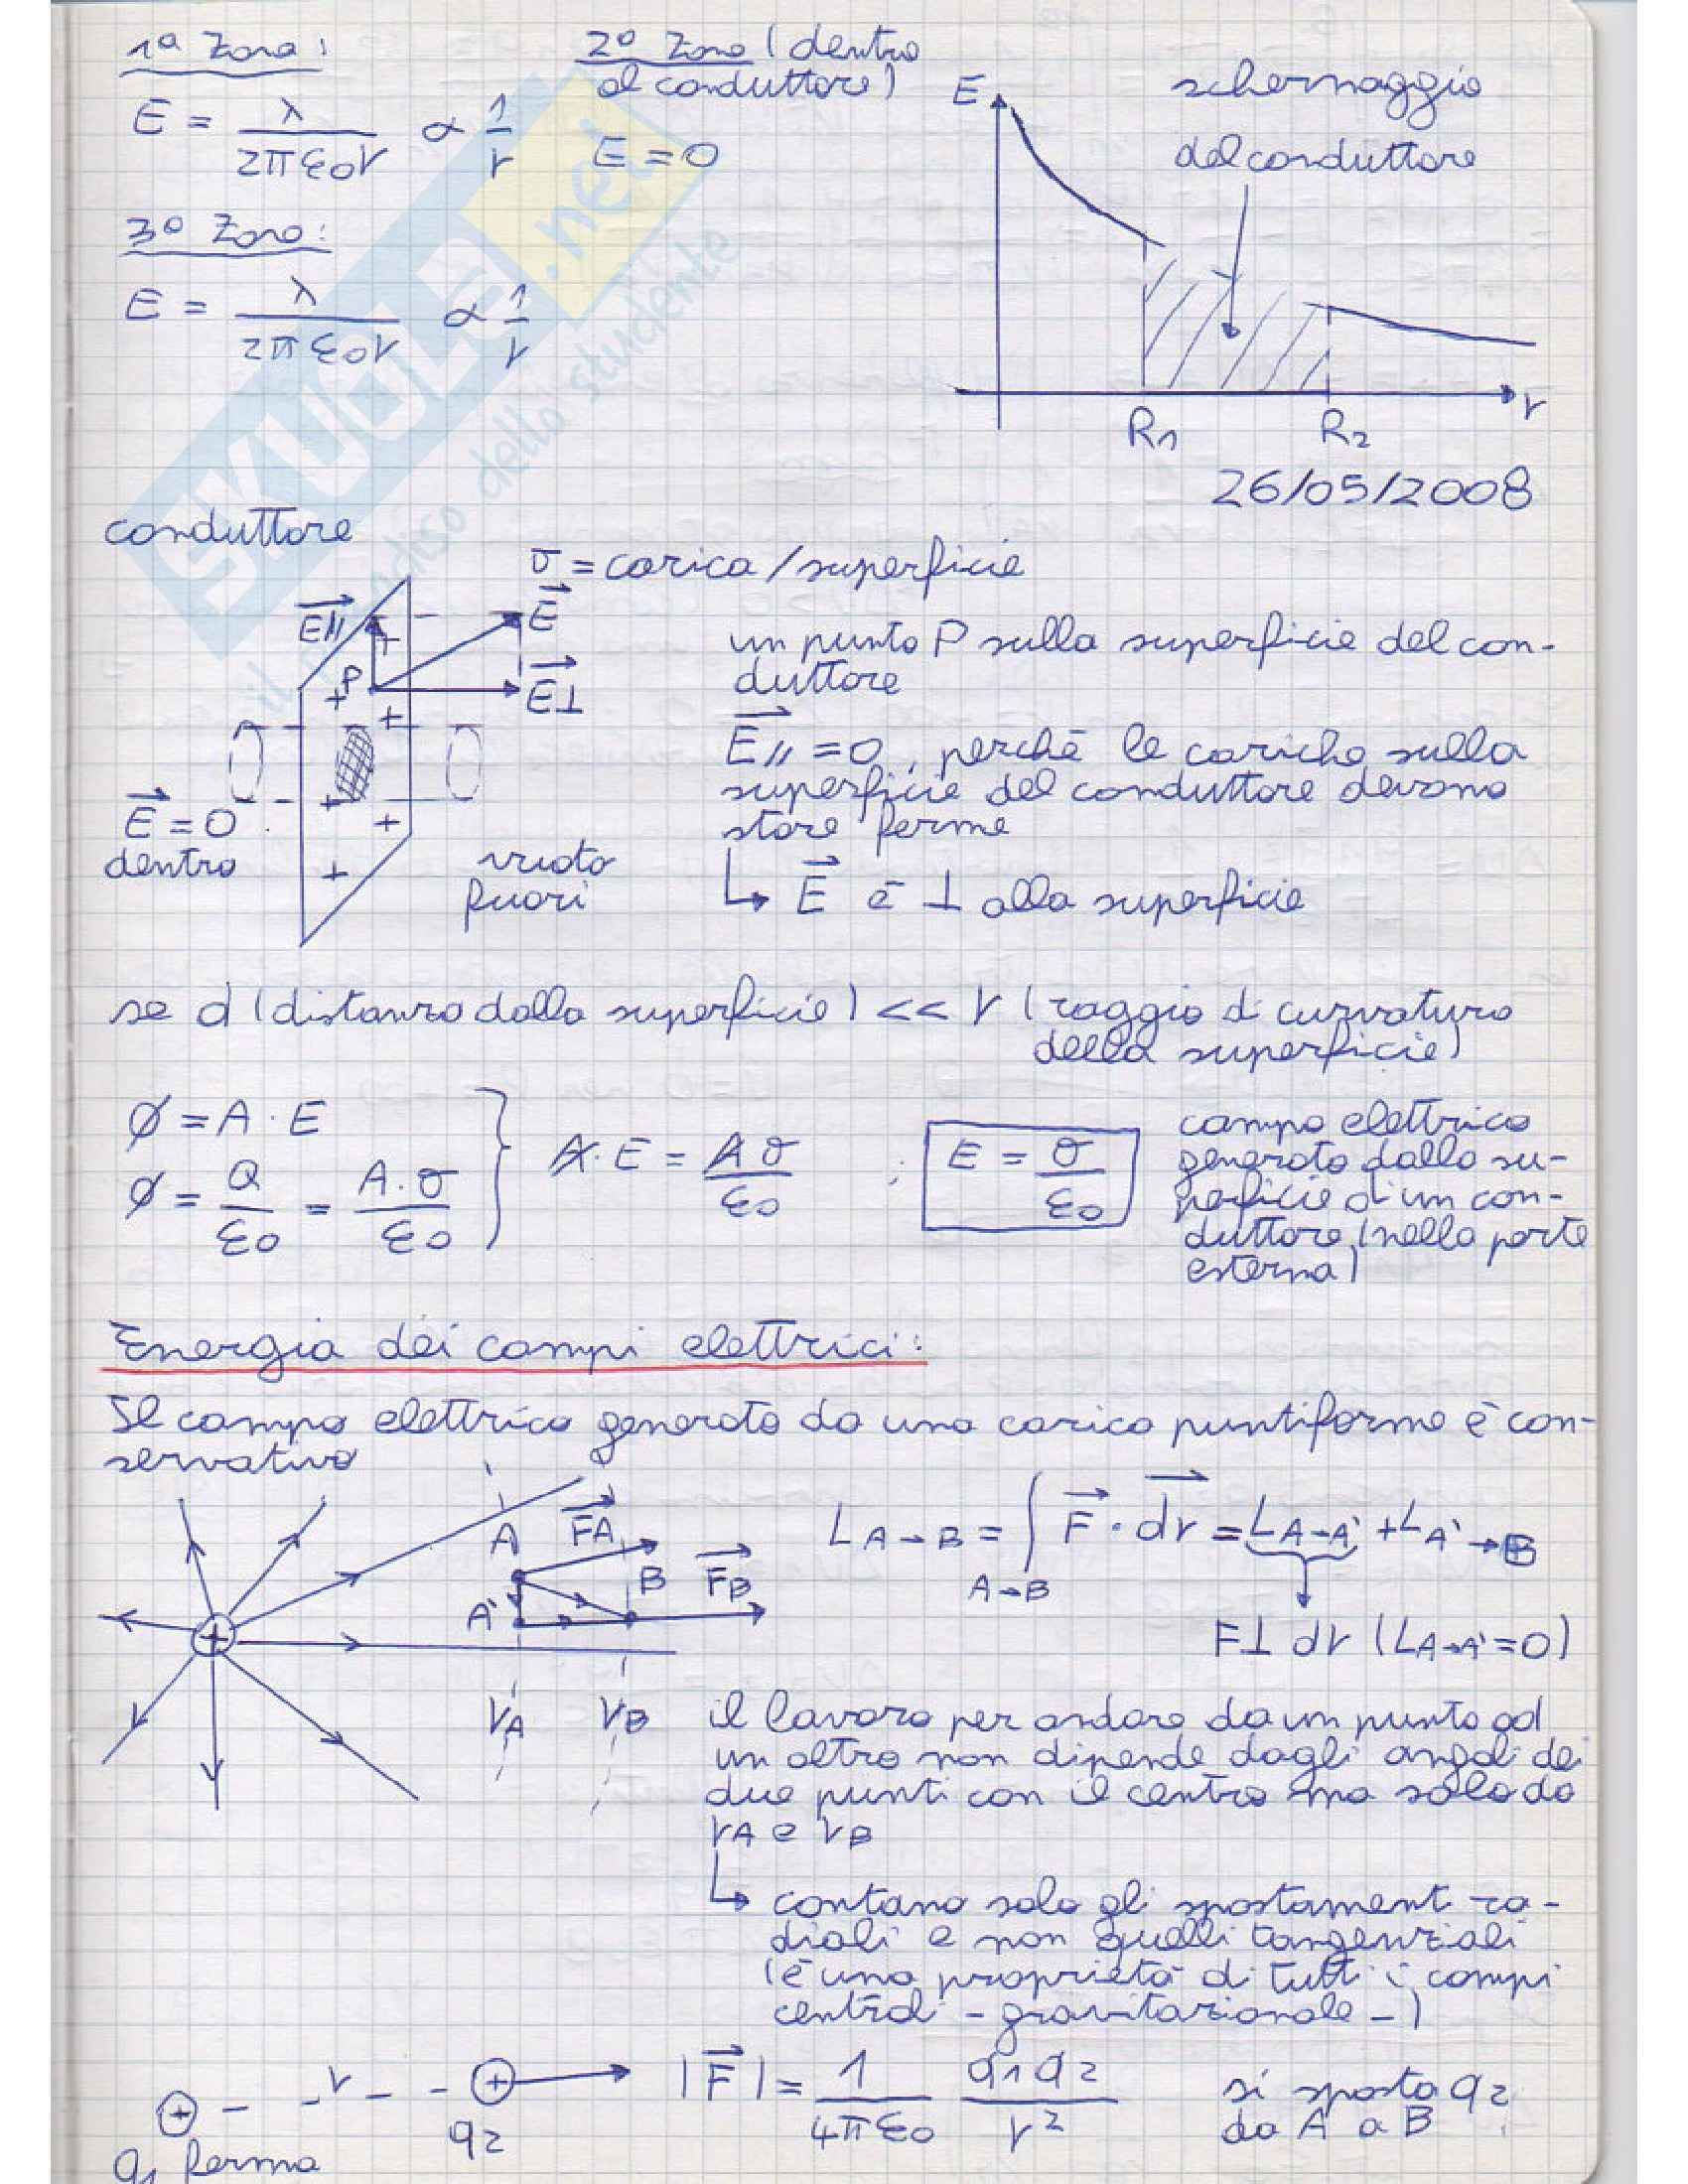 1ª Zona:
E = λ / 2πε0r ∝ 1/r
2º Zona (dentro
al conduttore)
E = 0
3º Zona:
E = λ / 2πε0r ∝ 1/r
E
schermaggio
del conduttore
R1
R2
r
26/05/2008
SKUOLA.net
il paradiso dello studente
conduttore
σ = carica/superficie
E//
E
P
E⊥
+
+
+
+
+
+
E = 0
dentro
vuoto
fuori
un punto P sulla superficie del con-
duttore
E// = 0, perché le cariche sulla
superficie del conduttore devono
stare ferme
↳ E è ⊥ alla superficie
se d (distanza dalla superficie) << r (raggio di curvatura
della superficie)
Ø = A · E
Ø = Q/ε0 = A·σ/ε0
A·E = Aσ/ε0 ; E = σ/ε0
campo elettrico
generato dalla su-
perficie di un con-
duttore (nella parte
esterna)
Energia dei campi elettrici:
Il campo elettrico generato da una carica puntiforme è con-
servativo
A
FA
A'
B
FB
+
rA
rB
LA→B = ∫A→B F · dr = LA→A' + LA'→B
F⊥dr (LA→A' = 0)
il lavoro per andare da un punto ad
un altro non dipende dagli angoli dei
due punti con il centro ma solo da
rA e rB
↳ contano solo gli spostamenti ra-
diali e non quelli tangenziali
(è una proprietà di tutti i campi
centrali - gravitazionale -)
+ r +
q2
q1 ferma
|F| = 1/4πε0 q1q2/r²
si sposta q2
da A a B